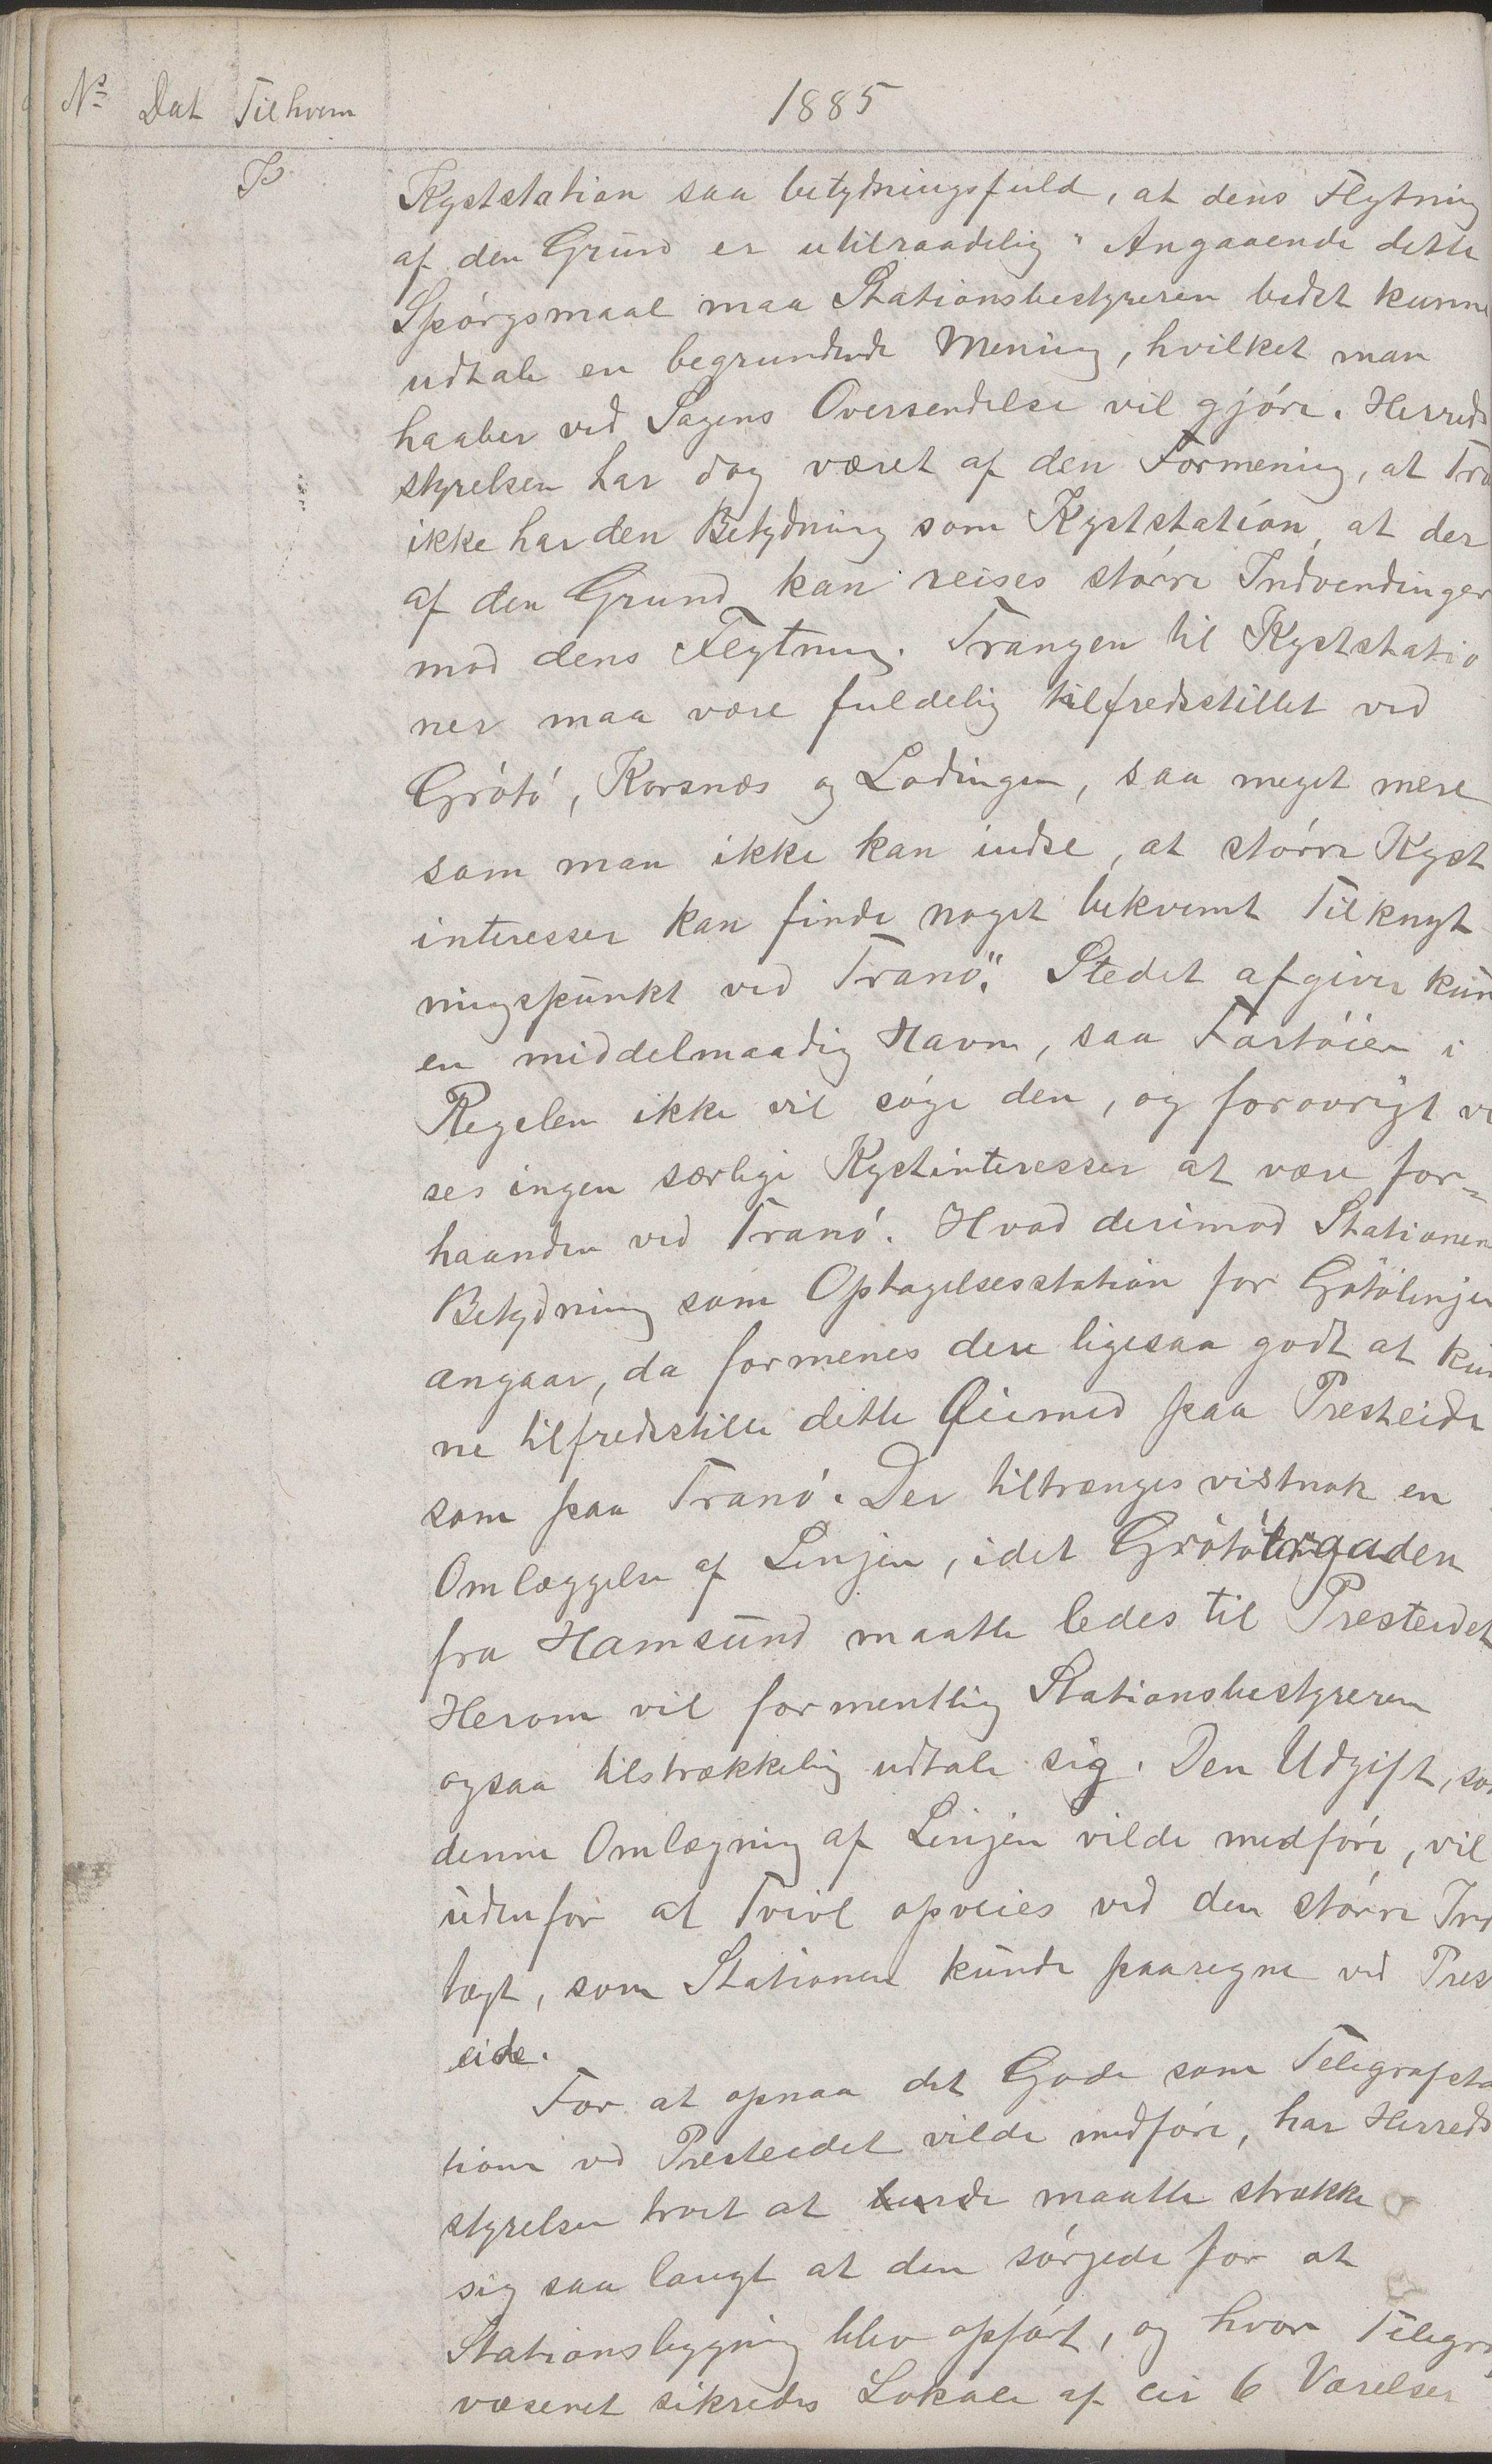 No Dat Til hvem 1885
Kyststation saa betydningsfuld, at dens Flytning
af den Grund er utilraadelig" Angaaende dette
Spórgsmaal maa Stationsbestyreren bedst kunne
udtale en begrundende Mening, hvilket man
haaber ved Sagens Oversendelse vil gjóre. Herreds
styrelsen har dog været af den Formening, at Tra
ikke har den Betydning som Kyststation, at der
af den Grund kan reises stórre Indvendinger
mod dens Flytning. Trangen til Kyststatio
ner maa være fuldelig tilfredsstillet ved
Grótó, Korsnæs og Lødingen, saa meget mere
som man ikke kan indse, at stórre Kyst
interesser kan finde noget bekvemt Tilknyt
ningspunkt ved Tranö". Stedet afgiver kun
en middelmaadig Havn, saa Fartóier i
Regelen ikke vil sóge den, og forøvrigt vi
ses ingen særlige Kystinteresser at være for=
haanden ved Tranó. Hvad derimod Stationen
Betydning som Optagelsesstation for Grótólinjen
angaar, da formenes dere ligesaa godt at kun
ne tilfredsstille dette Øiemed paa Presteide
som paa Tranó. Der tiltrænges vistnok en
Omlæggelse af Linjen, idet Grótótraaden
fra Hamsund maatte ledes til Presteidet
Herom vil formentlig Stationsbestyreren
ogsaa tilstrækkelig udtale sig. Den Udgift, som
denne Omlægning af Linjen vilde medfóre, vil
udenfor al Tvivl opveies ved den stórre Ind
tægt, som Stationen kunde paaregne ved Prest
eide.
For at opnaa det Gode som Telegrafsta
tion ved Presteidet vilde medfóre, har Herreds
styrelsen troet at burde maatte strække
sig saa langt at den sórgede for at
Stationsbygning blev opfórt, og hvor Telegraf
væsenet sikredes Lokale af cir 6 Værelser